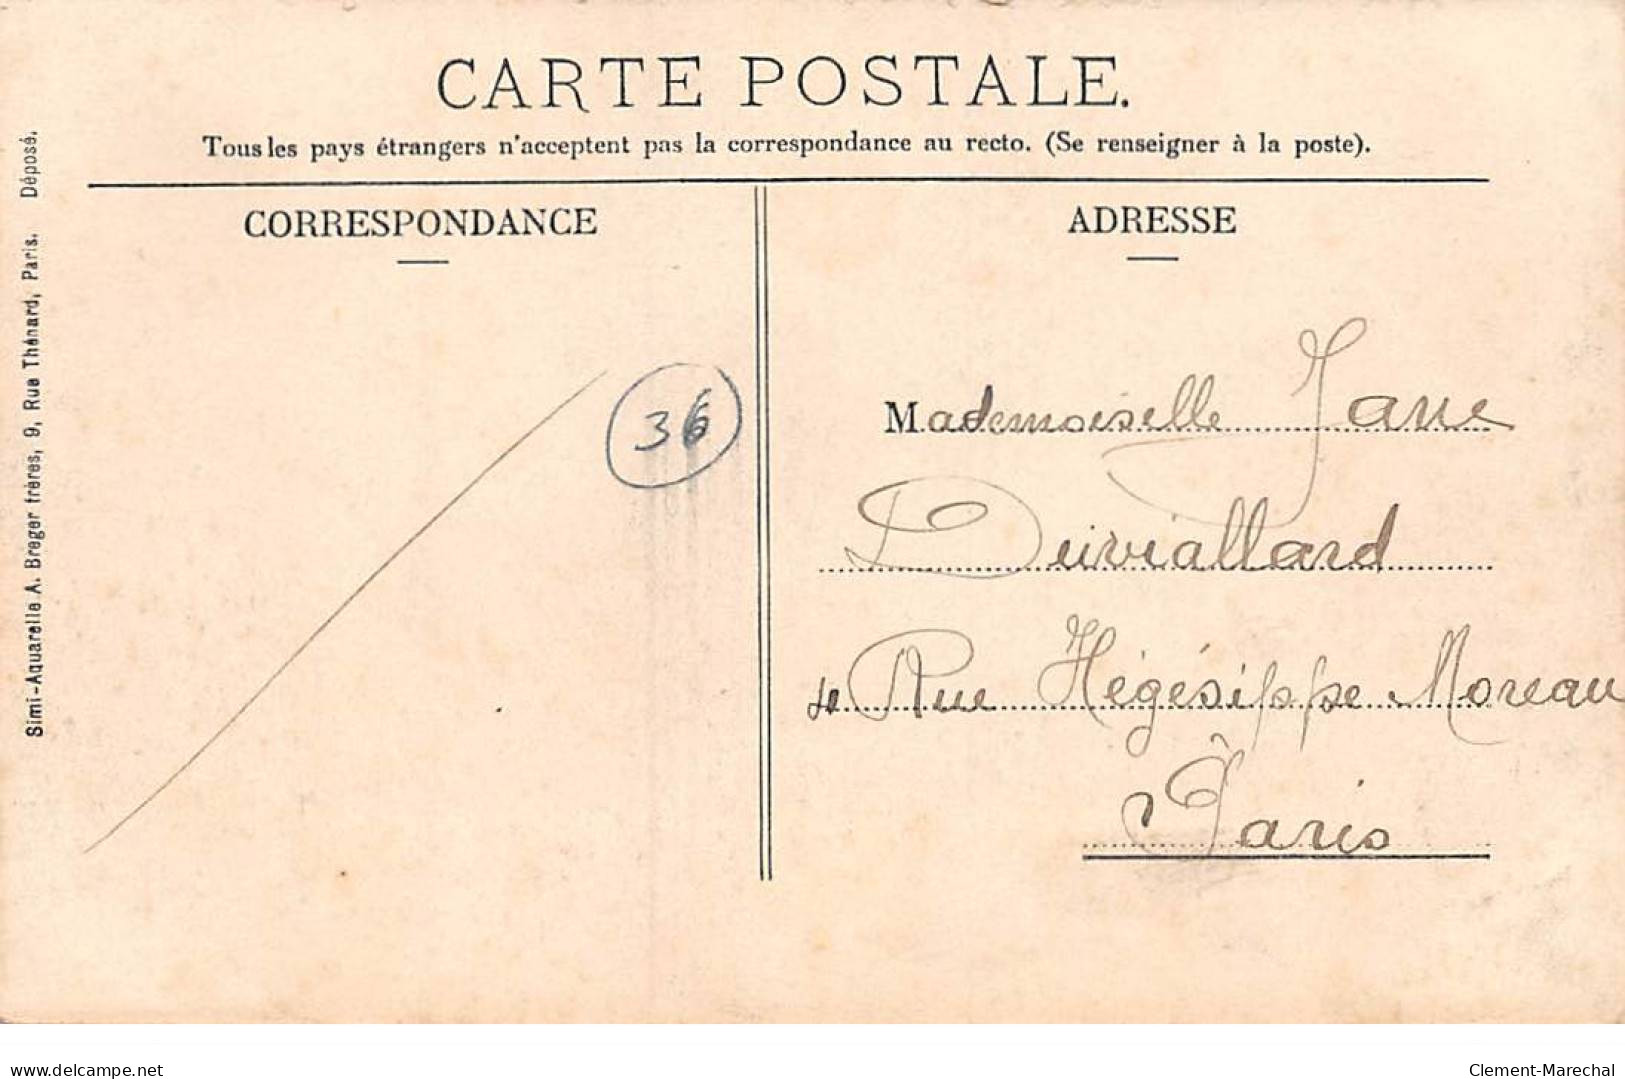 CARTE POSTALE.
Tous les pays étrangers n'acceptent pas la correspondance au recto. (Se renseigner à la poste).
Simi-Aquarelle A. Breger frères, 9, Rue Thénard, Paris. Déposé.
CORRESPONDANCE
36
ADRESSE
Mademoiselle Jane
Duviallard
4 Rue Hégésippe Moreau
Paris
www.delcampe.net
Clement-Marechal